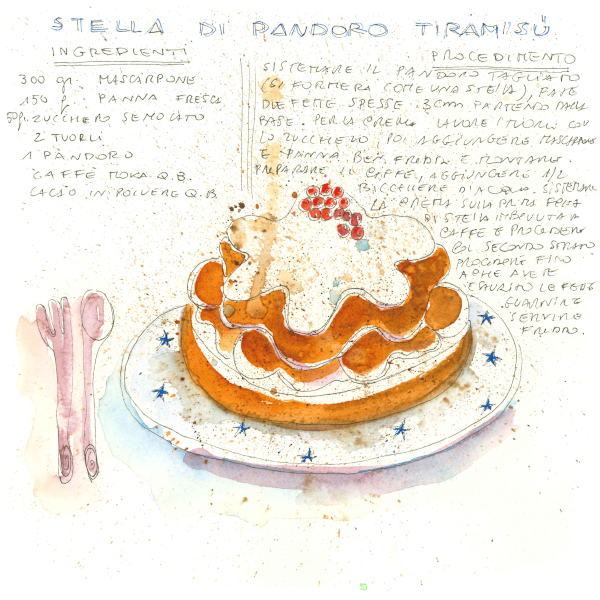 STELLA DI PANDORO TIRAMISÙ
INGREDIENTI
300 gr. MASCARPONE
150 g. PANNA FRESCA
50g. ZUCCHERO SEMOLATO
2 TUORLI
1 PANDORO
CAFFÈ MOKA Q.B.
CACAO IN POLVERE Q.B.
PROCEDIMENTO
SISTEMARE IL PANDORO TAGLIATO
(SI FORMERÀ COME UNA STELLA), FATE
DUE FETTE SPESSE 3cm PARTENDO DALLA
BASE. PER LA CREMA LAVORE I TUORLI CON
LO ZUCCHERO, POI AGGIUNGERE MASCARPONE
E PANNA BEN FREDDA E MONTARE.
PREPARARE IL CAFFÈ, AGGIUNGERE 1/2
BICCHIERE D'ACQUA. SISTEMARE
LA CREMA SULLA PRIMA FETTA
DI STELLA IMBEVUTA DI
CAFFÈ E PROCEDERE
COL SECONDO STRATO
PROCEDERE FINO
A CHE AVETE
ESAURITO LE FETTE
GUARNIRE
SERVIRE
FREDDO.